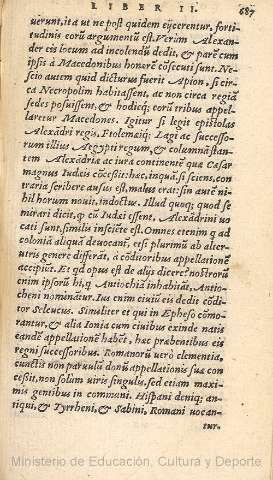 LIBER II. 687
uerunt, ita ut ne post quidem eijcerentur, forti
tudinis eorũ argumentũ est. Verùm Alexan-
der eis locum ad incolendũ dedit, & parẽ cum
ipsis à Macedonibus honorẽ cõsecuti sunt. Ne-
scio autem quid dicturus fuerit Apion, si cir-
ca Necropolim habitassent, ac non circa regiã
sedẽs posuissent, & hodieq́; eorũ tribus appel-
laretur Macedones. Igitur si legit epistolas
Alexãdri regis, Ptolemæiq́; Lagi ac successo-
rum illius Aegypti regum, & columnã stan-
tem Alexãdria ac iura continentẽ quæ Cæsar
magnus Iudæis cõcessit: hæc, inquã, si sciens, con
traria scribere ausus est, malus erat: sin autẽ ni-
hil horum nouit, indoctus. Illud quoq; quod se
mirari dicit, ꝙ cũ Iudæi essent, Alexãdrini uo
cati sunt, similis inscitiæ est. Omnes etenim q ad
coloniã aliquã deuocani, etsi plurimũ ab alter-
utris genere differãt, à cõditoribus appellationẽ
accipiũt. Et qd opus est de alijs dicere? nostrorũ
enim ipsorũ hi, q Antiochiã inhabitãt, Antio-
cheni nominãtur. Ius enim ciuiũ eis dedit cõdi-
tor Seleucus. Similiter et qui in Epheso cõmo-
rantur, & alia Ionia cum ciuibus exinde natis
eandẽ appellationẽ habẽt, hæc præbentibus eis
regni successoribus. Romanorũ uerò clementia,
cunctis non paruulũ donũ appellationis suæ con
cessit, non solùm uiris singulis, sed etiam maxi-
mis gentibus in communi. Hispani deniq; an-
tiqui, & Tyrrheni, & Sabini, Romani uocan-
tur.
Ministerio de Educación, Cultura y Deporte